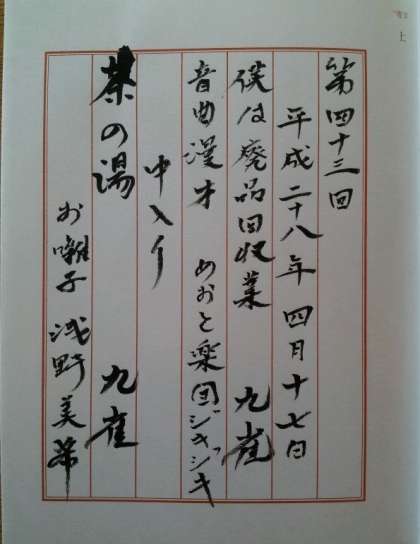 第四十三回
平成二十八年 四月十七日
僕は廃品回収業 九雀
音曲漫才 めおと楽団ジキジキ
中入り
茶の湯 九雀
お囃子 浅野美希